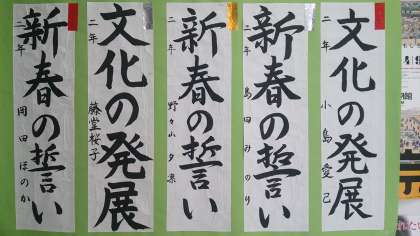 文化の発展
二年 小島愛己
新春の誓い
二年 島田みのり
新春の誓い
二年 野々山夕凛
文化の発展
二年 藤堂桜子
新春の誓い
二年 岡田ほのか